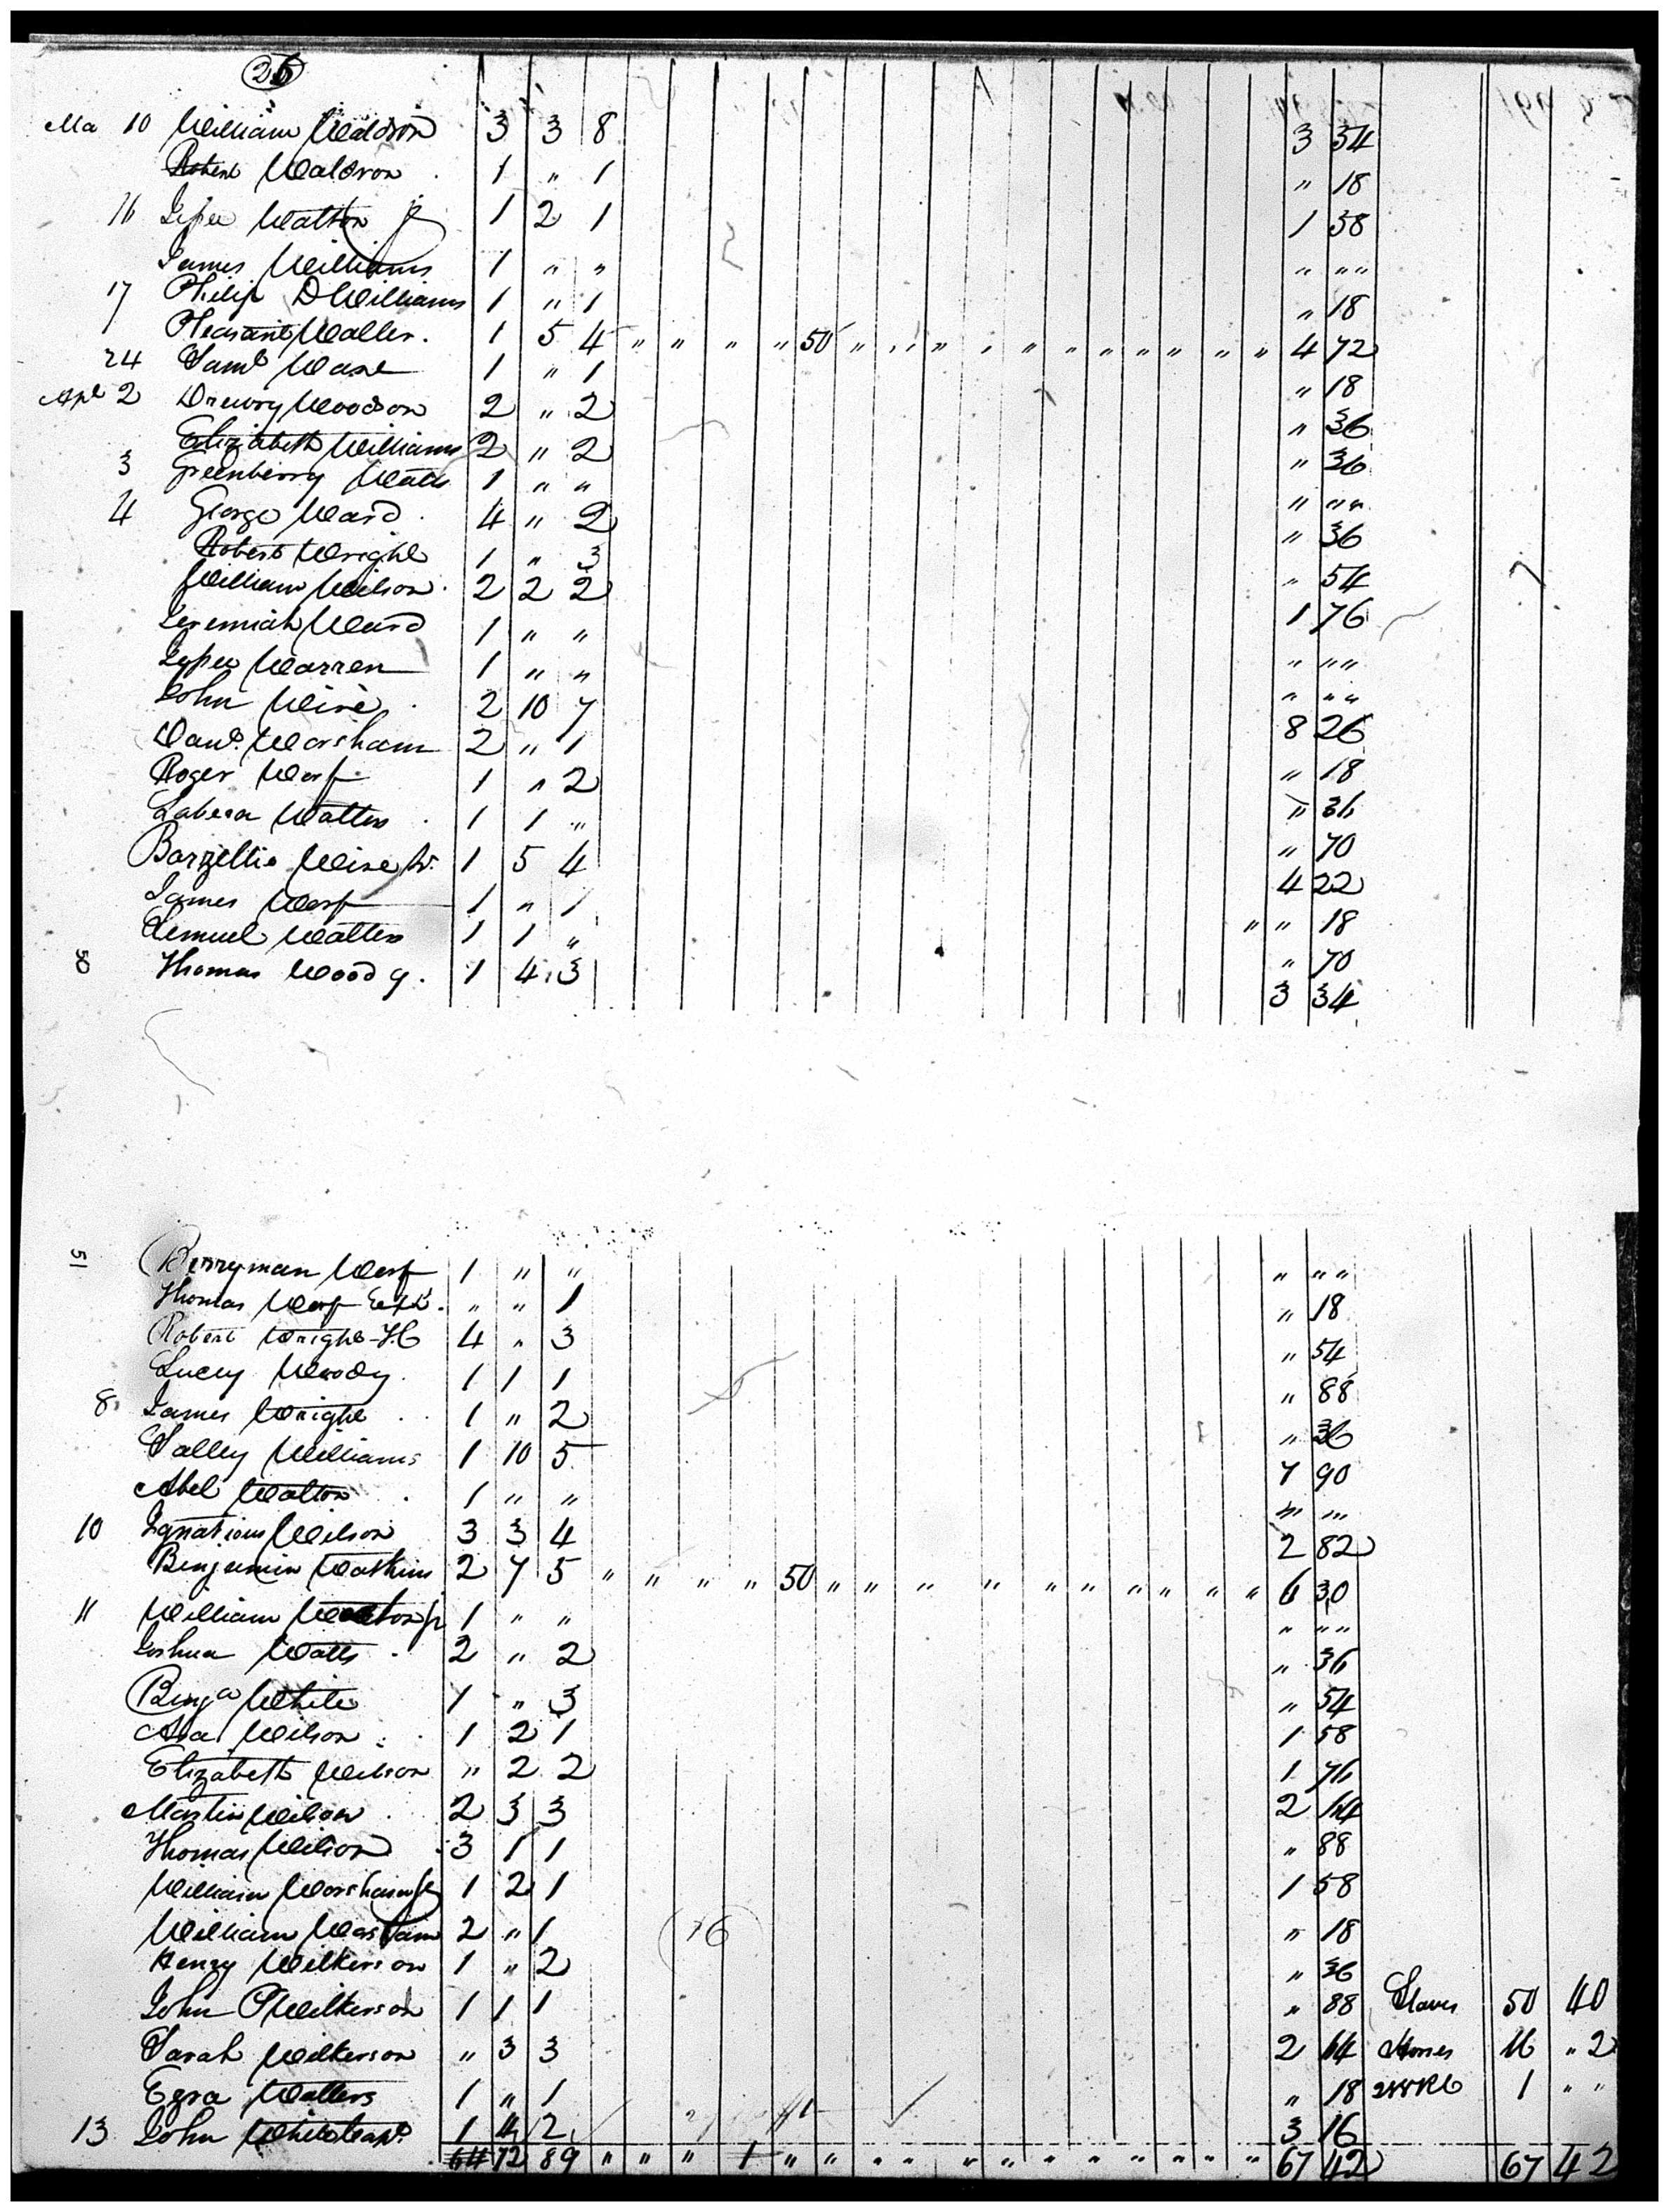 26
Ma 10 William Waldron 3 3 8 3 34
Robert Waldron . 1 " 1 " 18
16 Jesse Walton Jr 1 2 1 1 58
James Williams 1 " " " " "
17 Philip D Williams 1 " 1 " 18
Pleasant Waller . 1 5 4 " " " " 50 " " " " " " " " " " " 4 72
24 Saml 1 " 1 " 18
Apl 2 Drewry Woodson 2 " 2 " 36
Elizabeth Williams 2 " 2 " 36
3 Greenberry Watts 1 " " " " "
4 George Ward . 4 " 2 " 36
Robert Wright 1 " 3 " 54
William Wilson . 2 2 2 1 76
Jeremiah Ward 1 " " " " "
Jesse Warren 1 " " " " "
John Wise . 2 10 7 8 26
Danl. Worsham 2 " 1 " 18
Roger West 1 " 2 " 36
Walters . 1 1 " " 70
Wise 1 5 4 4 22
James West 1 " 1 " " 18
Lemuel Walters 1 1 " " 70
50 Thomas Woody . 1 4 3 3 34
51 Berryman West 1 " " " " "
Thomas West . " " 1 " 18
Robert Wright 4 " 3 " 54
Lucy Woody . 1 1 1 " 88
8 James Wright . . 1 " 2 " 36
Salley Williams 1 10 5 7 90
Abel Walton . 1 " " " "
10 Ignatious Wilson 3 3 4 2 82
Benjamin Watkins 2 7 5 " " " " 50 " " " " " " " " " " 6 30
11 William Jr 1 " " " " "
Joshua Watts . 2 " 2 " 36
Benja White 1 " 3 " 54
Asa Wilson . 1 2 1 1 58
Elizabeth Wilson " 2 2 1 76
Martin Wilson . 2 3 3 2 64
Thomas Wilson 3 1 1 " 88
William Worsham 1 2 1 1 58
William Worsham 2 " 1 " 18
Henry Wilkerson 1 " 2 " 36
John P Wilkerson 1 1 1 " 88 Slaves 50 40
Sarah Wilkerson " 3 3 2 64 Horses 16 " 2
Ezra Walters 1 " 1 " 18 1 " "
13 John 1 4 2 3 16
64 72 89 " " " 1 " " " " " " " " " " " " 67 42 67 42